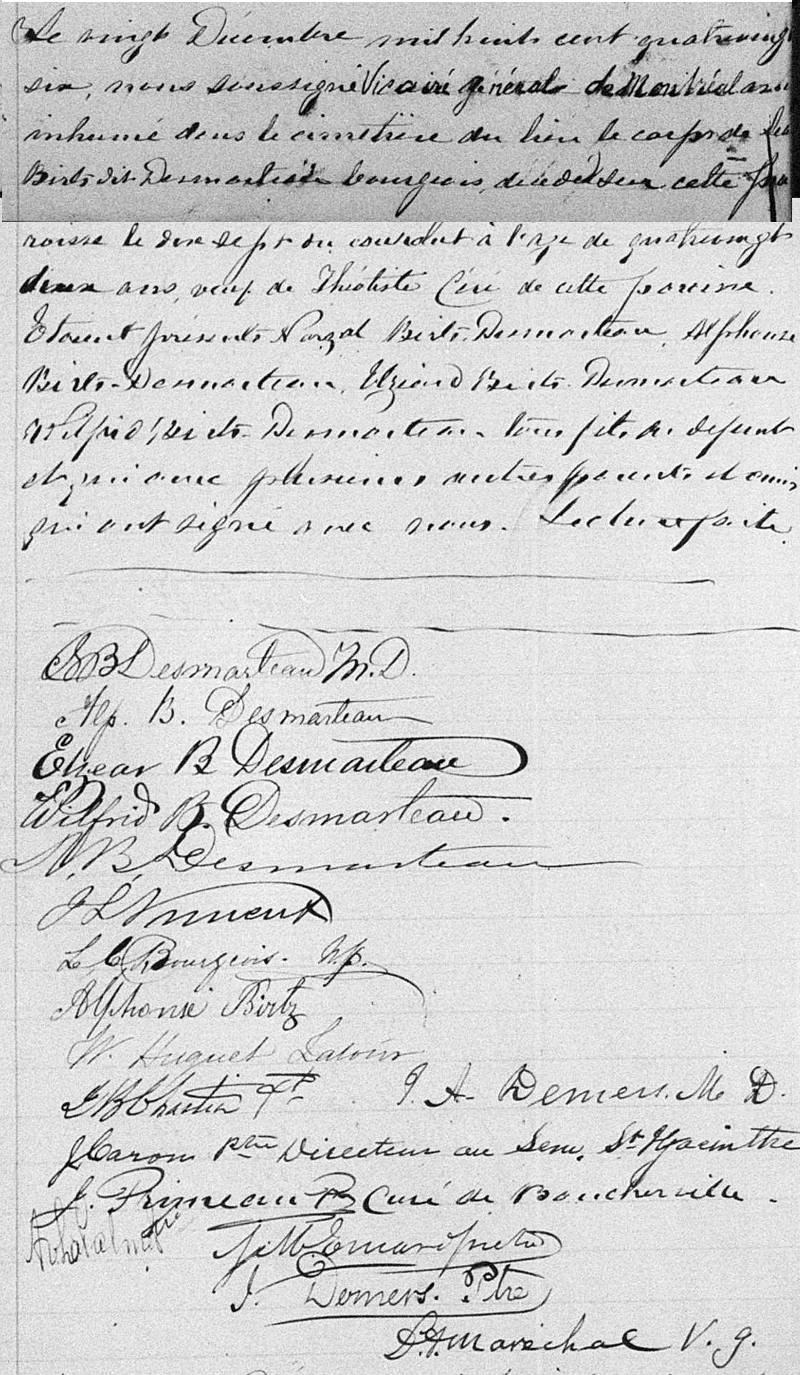 Le vingt Décembre mil huit cent quatrevingt
six, nous soussigné Vicaire général de Montréal avons
inhumé dans le cimetière du lieu le corps de
Birts dit Desmarteau bourgeois, décédé sur cette pa
roisse le dix sept du courant à l'age de quatrevingt
deux ans, veuf de Théotiste Céré de cette paroisse.
Etaient présents Birts-Desmarteau, Alphonse
Birts-Desmarteau, Elzéard Birts-Desmarteau
Wilfrid Birts-Desmarteau tous fils du défunt
et qui avec plusieurs autres parents et amis
qui ont signé avec nous. Lecture faite.
B Desmarteau M.D.
Alp. B. Desmarteau
Elzear B Desmarteau
Wilfrid B. Desmarteau.
N. B. Desmarteau
J L Vincent
L C Bourgeois. Np.
Alphonse Birtz
W. Huguet Latour
J B Chartier Pt J. A. Demers. M D.
J Caron Ptre Directeur au Sem. St Hyacinthe
J. Primeau P Curé de Boucherville.
J M Emard ptre
J. Demers. Ptre
L. Maréchal V. g.